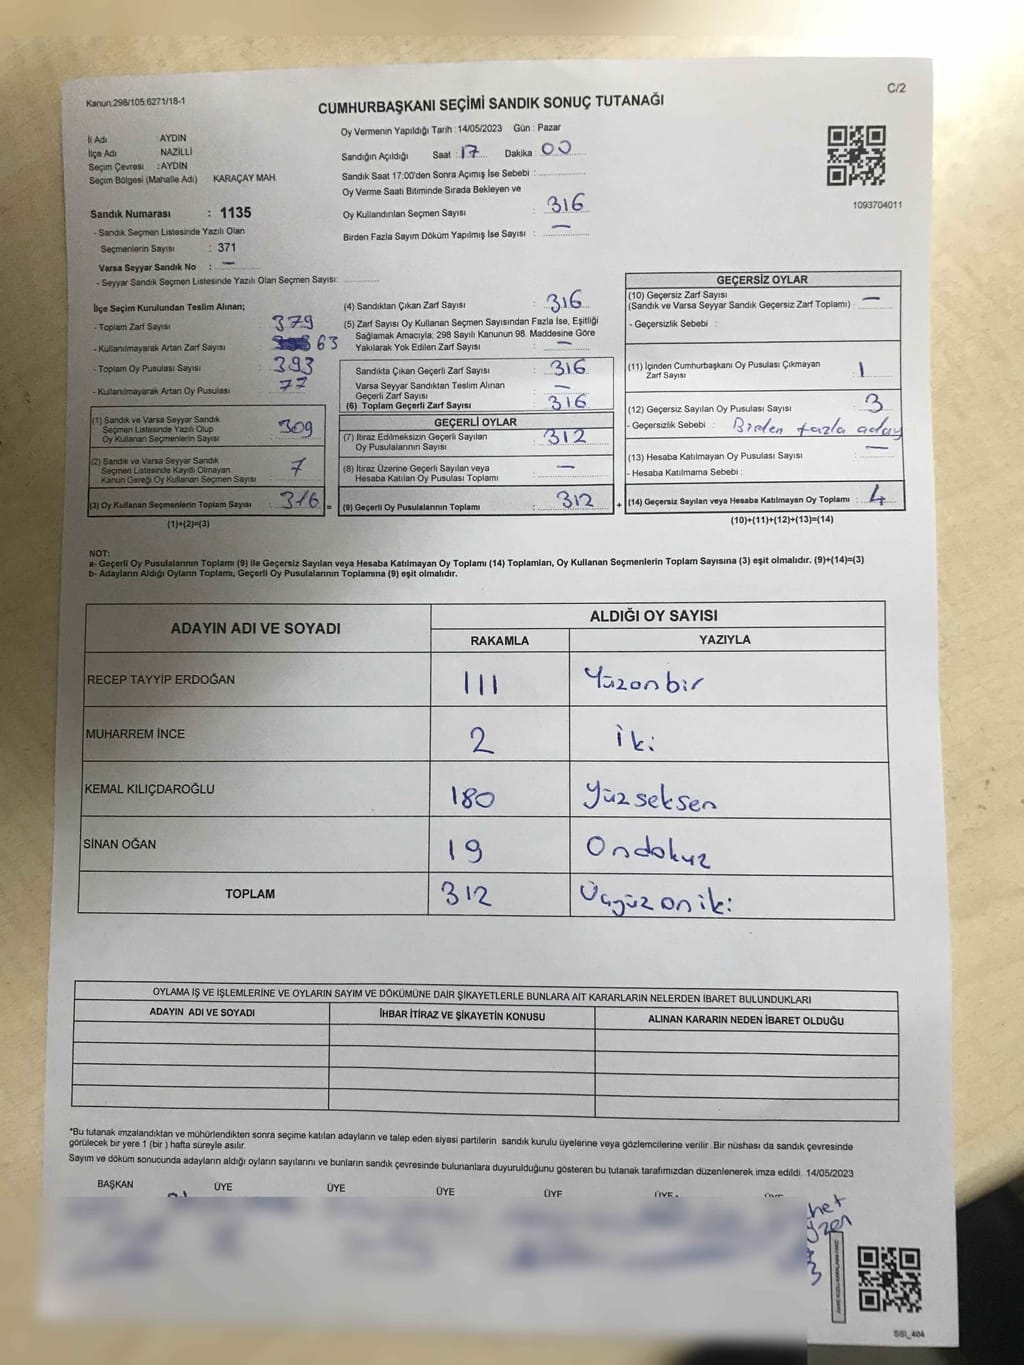 Kanun:298/105;6271/18-1
C/2
CUMHURBAŞKANI SEÇİMİ SANDIK SONUÇ TUTANAĞI
Oy Vermenin Yapıldığı Tarih :14/05/2023 Gün : Pazar
İl Adı : AYDIN
İlçe Adı NAZİLLİ
Seçim Çevresi : AYDIN
Seçim Bölgesi (Mahalle Adı) KARAÇAY MAH.
Sandık Numarası : 1135
- Sandık Seçmen Listesinde Yazılı Olan
Seçmenlerin Sayısı : 371
Varsa Seyyar Sandık No : —
- Seyyar Sandık Seçmen Listesinde Yazılı Olan Seçmen Sayısı: ..............
Sandığın Açıldığı Saat : 17 Dakika : 00
Sandık Saat 17:00'den Sonra Açımış İse Sebebi : ..............
Oy Verme Saati Bitiminde Sırada Bekleyen ve
Oy Kullandırılan Seçmen Sayısı : 316
Birden Fazla Sayım Döküm Yapılmış İse Sayısı : —
1093704011
İlçe Seçim Kurulundan Teslim Alınan;
- Toplam Zarf Sayısı : 379
- Kullanılmayarak Artan Zarf Sayısı 63
- Toplam Oy Pusulası Sayısı : 393
- Kullanılmayarak Artan Oy Pusulası : 77
(1) Sandık ve Varsa Seyyar Sandık
Seçmen Listesinde Yazılı Olup
Oy Kullanan Seçmenlerin Sayısı : 309
(2) Sandık ve Varsa Seyyar Sandık
Seçmen Listesinde Kayıtlı Olmayan
Kanun Gereği Oy Kullanan Seçmen Sayısı : 7
(3) Oy Kullanan Seçmenlerin Toplam Sayısı : 316 =
(1)+(2)=(3)
(4) Sandıktan Çıkan Zarf Sayısı : 316
(5) Zarf Sayısı Oy Kullanan Seçmen Sayısından Fazla İse, Eşitliği
Sağlamak Amacıyla; 298 Sayılı Kanunun 98. Maddesine Göre
Yakılarak Yok Edilen Zarf Sayısı : —
Sandıkta Çıkan Geçerli Zarf Sayısı : 316
Varsa Seyyar Sandıktan Teslim Alınan
Geçerli Zarf Sayısı : —
(6) Toplam Geçerli Zarf Sayısı : 316
GEÇERLİ OYLAR
(7) İtiraz Edilmeksizin Geçerli Sayılan
Oy Pusulasının Sayısı : 312
(8) İtiraz Üzerine Geçerli Sayılan veya
Hesaba Katılan Oy Pusulası Toplamı : —
(9) Geçerli Oy Pusulalarının Toplamı : 312 +
GEÇERSİZ OYLAR
(10) Geçersiz Zarf Sayısı
(Sandık ve Varsa Seyyar Sandık Geçersiz Zarf Toplamı) : —
- Geçersizlik Sebebi :
(11) İçinden Cumhurbaşkanı Oy Pusulası Çıkmayan
Zarf Sayısı : 1
(12) Geçersiz Sayılan Oy Pusulası Sayısı : 3
- Geçersizlik Sebebi : Birden fazla aday
(13) Hesaba Katılmayan Oy Pusulası Sayısı : —
- Hesaba Katılmama Sebebi :
(14) Geçersiz Sayılan veya Hesaba Katılmayan Oy Toplamı : 4
(10)+(11)+(12)+(13)=(14)
NOT:
a- Geçerli Oy Pusulalarının Toplamı (9) ile Geçersiz Sayılan veya Hesaba Katılmayan Oy Toplamı (14) Toplamları, Oy Kullanan Seçmenlerin Toplam Sayısına (3) eşit olmalıdır. (9)+(14)=(3)
b- Adayların Aldığı Oyların Toplamı, Geçerli Oy Pusulalarının Toplamına (9) eşit olmalıdır.
ADAYIN ADI VE SOYADI ALDIĞI OY SAYISI
RAKAMLA YAZIYLA
RECEP TAYYİP ERDOĞAN 111 Yüzonbir
MUHARREM İNCE 2 iki
KEMAL KILIÇDAROĞLU 180 Yüzseksen
SİNAN OĞAN 19 Ondokuz
TOPLAM 312 Üçyüzoniki
OYLAMA İŞ VE İŞLEMLERİNE VE OYLARIN SAYIM VE DÖKÜMÜNE DAİR ŞİKAYETLERLE BUNLARA AİT KARARLARIN NELERDEN İBARET BULUNDUKLARI
ADAYIN ADI VE SOYADI İHBAR İTİRAZ VE ŞİKAYETİN KONUSU ALINAN KARARIN NEDEN İBARET OLDUĞU
*Bu tutanak imzalandıktan ve mühürlendikten sonra seçime katılan adayların ve talep eden siyasi partilerin sandık kurulu üyelerine veya gözlemcilerine verilir .Bir nüshası da sandık çevresinde
görülecek bir yere 1 (bir ) hafta süreyle asılır.
Sayım ve döküm sonucunda adayların aldığı oyların sayılarını ve bunların sandık çevresinde bulunanlara duyurulduğunu gösteren bu tutanak tarafımızdan düzenlenerek imza edildi. 14/05/2023
BAŞKAN ÜYE ÜYE ÜYE ÜYE ÜYE
SSI_404